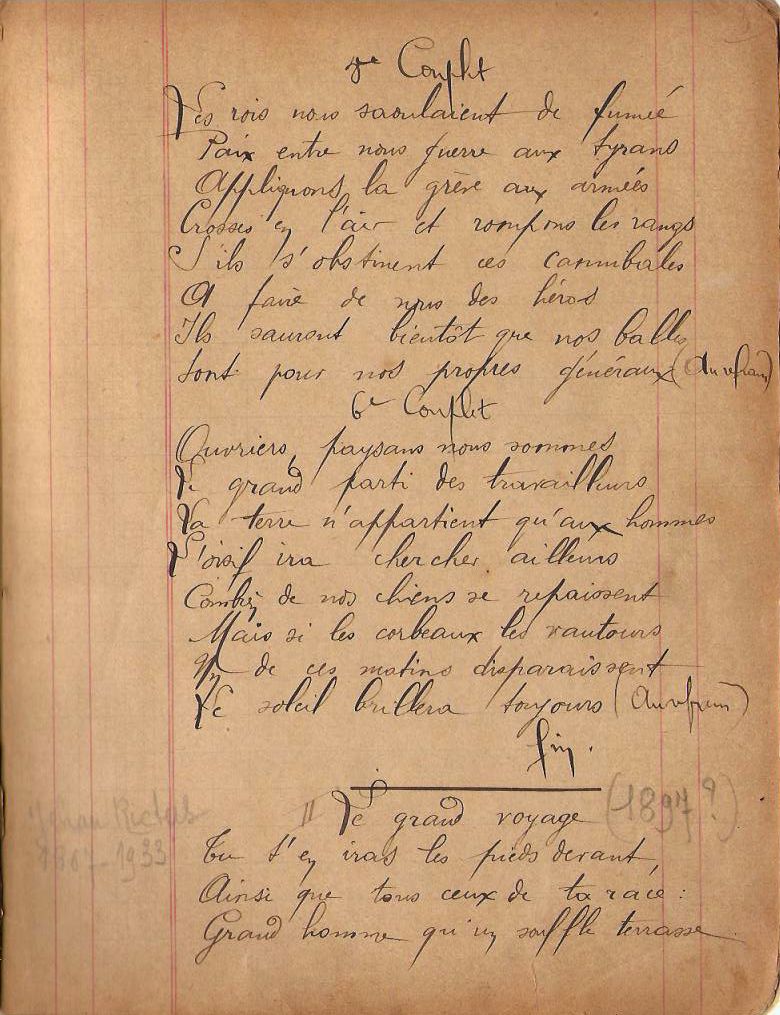 5e Couplet
Les rois nous saoulaient de fumée
Paix entre nous guerre aux tyrans
Appliquons la grève aux armées
Crosses en l'air et rompons les rangs
S'ils s'obstinent ces cannibales
A faire de nous des héros
Ils sauront bientôt que nos balles
Sont pour nos propres généraux (Au refrain)
6e Couplet
Ouvriers, paysans nous sommes
Le grand parti des travailleurs
La terre n'appartient qu'aux hommes
L'oisif ira chercher ailleurs
Combien de nos chiens se repaissent
Mais si les corbeaux les vautours
Un de ces matins disparaissent
Le soleil brillera toujours (Au refrain)
fin.
II Le grand voyage (1897?)
Jehan Rictus
Tu t'en iras les pieds devant,
1933
Ainsi que tous ceux de ta race:
Grand homme qu'un souffle terrasse